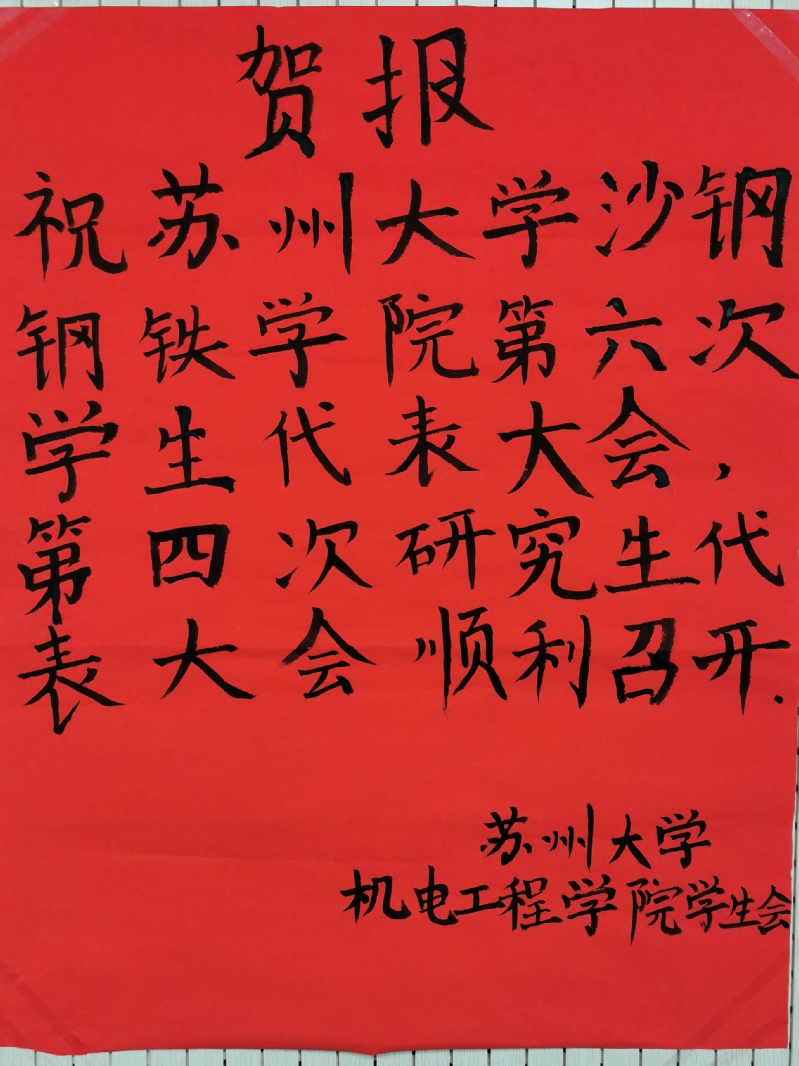 贺报
祝苏州大学沙钢
钢铁学院第六次
学生代表大会，
第四次研究生代
表大会顺利召开.
苏州大学
机电工程学院学生会